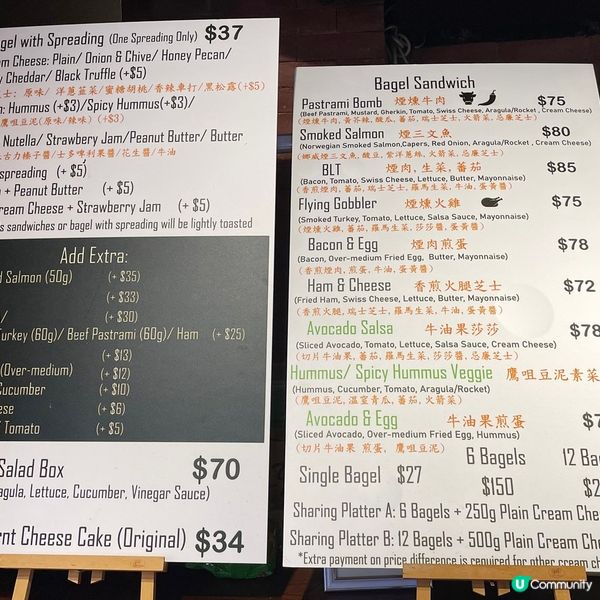 agel with Spreading (One Spreading Only) $37
am Cheese: Plain/ Onion & Chive/ Honey Pecan/
Cheddar/ Black Truffle (+$5)
士: 原味/ 洋蔥韮菜/蜜糖胡桃/香辣車打/黑松露(+$5)
Hummus (+$3)/Spicy Hummus(+$3)/
鷹咀豆泥(原味/辣味) (+$3)
Nutella/ Strawbery Jam/Peanut Butter/ Butter
古力榛子醬/士多啤利果醬/花生醬/牛油
spreading (+ $5)
+ Peanut Butter (+ $5)
ream Cheese + Strawberry Jam (+ $5)
s sandwiches or bagel with spreading will be lightly toasted
Add Extra:
Salmon (50g) (+ $35)
(+ $33)
/ (+ $30)
Turkey (60g)/ Beef Pastrami (60g)/ Ham (+ $25)
(+ $13)
(Over-medium) (+ $12)
Cucumber (+ $10)
ese (+ $6)
Tomato (+ $5)
Salad Box $70
agula, Lettuce, Cucumber, Vinegar Sauce)
rnt Cheese Cake (Original) $34
Bagel Sandwich
Pastrami Bomb 煙燻牛肉 $75
(Beef Pastrami, Mustard, Gherkin, Tomato, Swiss Cheese, Arugula/Rocket , Cream Cheese)
(煙燻牛肉, 黃芥辣, 酸瓜, 蕃茄, 瑞士芝士, 火箭菜, 忌廉芝士)
Smoked Salmon 煙三文魚 $80
(Norwegian Smoked Salmon,Capers, Red Onion, Aragula/Rocket , Cream Cheese)
(挪威煙三文魚, 酸豆, 紫洋蔥絲, 火箭菜, 忌廉芝士)
BLT 煙肉, 生菜, 蕃茄 $85
(Bacon, Tomato, Swiss Cheese, Lettuce, Butter, Mayonnaise)
(香煎煙肉, 蕃茄, 瑞士芝士, 羅馬生菜, 牛油, 蛋黃醬)
Flying Gobbler 煙燻火雞 $75
(Smoked Turkey, Tomato, Lettuce, Salsa Sauce, Mayonnaise)
(煙燻火雞, 蕃茄, 羅馬生菜, 莎莎醬, 蛋黃醬)
Bacon & Egg 煙肉煎蛋 $78
(Bacon, Over-medium Fried Egg, Butter, Mayonnaise)
(香煎煙肉, 煎蛋, 牛油, 蛋黃醬)
Ham & Cheese 香煎火腿芝士 $72
(Fried Ham, Swiss Cheese, Lettuce, Butter, Mayonnaise)
(香煎火腿, 瑞士芝士, 羅馬生菜, 牛油, 蛋黃醬)
Avocado Salsa 牛油果莎莎 $78
(Sliced Avocado, Tomato, Lettuce, Salsa Sauce, Cream Cheese)
(切片牛油果, 蕃茄, 羅馬生菜, 莎莎醬, 忌廉芝士)
Hummus/ Spicy Hummus Veggie 鷹咀豆泥素菜
(Hummus, Cucumber, Tomato, Aragula/Rocket)
(鷹咀豆泥, 溫室青瓜, 蕃茄, 火箭菜)
Avocado & Egg 牛油果煎蛋 $7
(Sliced Avocado, Over-medium Fried Egg, Hummus)
(切片牛油果 煎蛋, 鷹咀豆泥)
6 Bagels 12 Bag
Single Bagel $27 $150 $2
Sharing Platter A: 6 Bagels + 250g Plain Cream Che
Sharing Platter B: 12 Bagels + 500g Plain Cream Che
*Extra payment on price difference is required for other cream ch
U Community